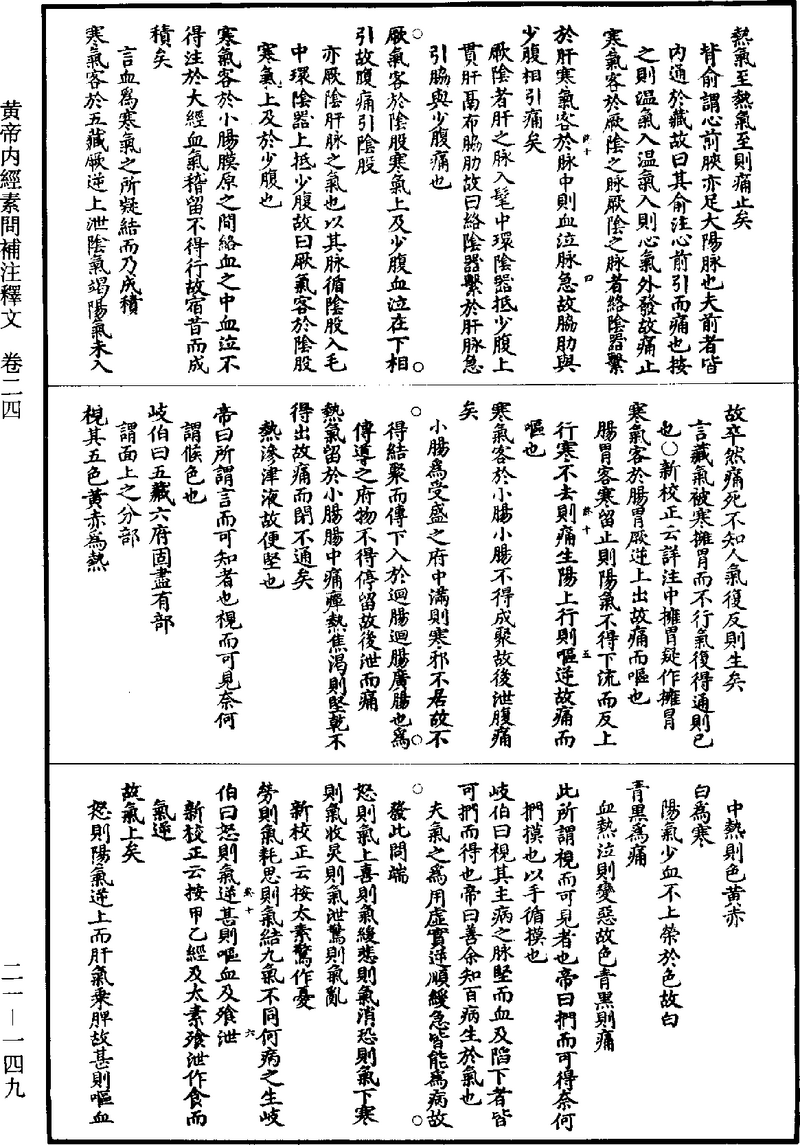 熱氣至熱氣至則痛止矣
背俞謂心俞脉亦足大陽脉也夫前者皆
内通於藏故曰其俞注心前引而痛也按
之則温氣入温氣入則心氣外發故痛止
寒氣客於厥陰之脉厥陰之脉者絡陰器繫
於肝寒氣客於脉中則血泣脉急故脇肋與
少腹相引痛矣
厥陰者肝之脉入髦中環陰器抵少腹上
貫肝鬲布脇肋故曰絡陰器繫於肝脉急
引脇與少腹痛也
厥氣客於陰股寒氣上及少腹血泣在下相
引故腹痛引陰股
亦厥陰肝脉之氣也以其脉循陰股入毛
中環陰器上抵少腹故曰厥氣客於陰股
寒氣上及於少腹也
寒氣客於小腸膜原之間絡血之中血泣不
得注於大經血氣稽留不得行故宿昔而成
積矣
言血為寒氣之所凝結而乃成積
寒氣客於五藏厥逆上泄陰氣竭陽氣未入
故卒然痛死不知人氣復反則生矣
言藏氣被寒擁胃而不行氣復得通則已
也○新校正云詳注中擁胃疑作擁冒
寒氣客於腸胃厥逆上出故痛而嘔也
腸胃客寒留止則陽氣不得下流而反上
行寒不去則痛生陽上行則嘔逆故痛而
嘔也
寒氣客於小腸小腸不得成聚故後泄腹痛
矣
小腸為受盛之府中滿則寒邪不居故不
得結聚而傳下入於迴腸迴腸廣腸也為
傳導之府物不得停留故後泄而痛
熱氣留於小腸腸中痛癉熱焦渴則堅乾不
得出故痛而閉不通矣
熱滲津液故便堅也
帝曰所謂言而可知者也視而可見奈何
謂候色也
岐伯曰五藏六府固盡有部
謂面上之分部
視其五色黄赤為熱
中熱則色黄赤
白為寒
陽氣少血不上榮於色故白
青黑為痛
血熱泣則變惡故色青黑則痛
此所謂視而可見者也帝曰捫而可得奈何
捫摸也以手循摸也
岐伯曰視其主病之脉堅而血及陷下者皆
可捫而得也帝曰善余知百病生於氣也
夫氣之為用虚實逆順緩急皆能為病故
發此問端
怒則氣上喜則氣緩悲則氣消恐則氣下寒
則氣收炅則氣泄驚則氣亂
新校正云按太素驚作憂
勞則氣耗思則氣結九氣不同何病之生岐
伯曰怒則氣逆甚則嘔血及飱泄
新校正云按甲乙經及太素飱泄作食而
氣逆
故氣上矣
怒則陽氣逆上而肝氣乘脾故甚則嘔血
黄帝内經素問補注釋文 卷二四
二一—一四九